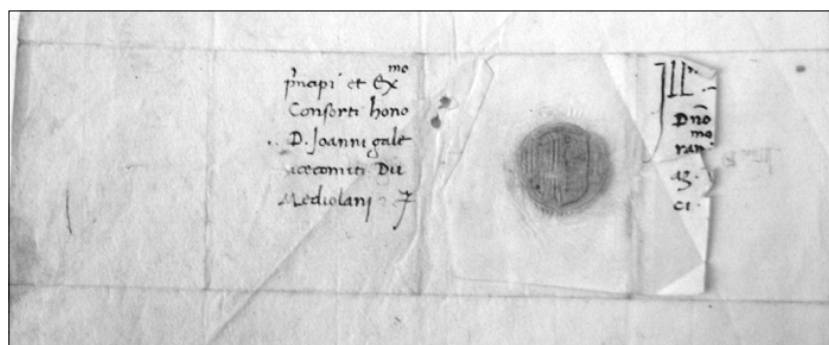 pͥncipi et Ex^mo
Consorti hono
D. Joanni gale
vicecomiti Du
Mediolani
Ill
Dn̄o
ran^mo
az.
ci.